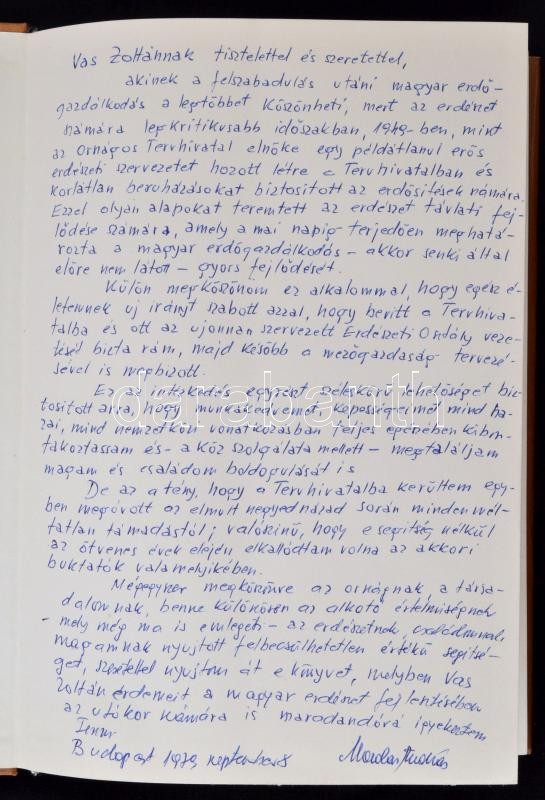 Vas Zoltánnak tisztelettel és szeretettel,
akinek a felszabadulás utáni magyar erdő-
gazdálkodás a legtöbbet köszönheti, mert az erdészet
számára legkritikusabb időszakban, 1949-ben, mint
az Országos Tervhivatal elnöke egy példátlanul erős
erdészeti szervezetet hozott létre a Tervhivatalban és
korlátlan beruházásokat biztosított az erdősítések számára.
Ezzel olyan alapokat teremtett az erdészet távlati fej-
lődése számára, amely a mai napig terjedően meghatá-
rozta a magyar erdőgazdálkodás – akkor senki által
előre nem látott – gyors fejlődését.
Külön megköszönöm ez alkalommal, hogy egész é-
letemnek új irányt szabott azzal, hogy bevitt a Tervhiva-
talba és ott az ujonnan szervezett Erdészeti Osztály veze-
tését bízta rám, majd később a mezőgazdaság tervezé-
sével is megbízott.
Ez az intézkedés egyrészt széleskörű lehetőséget biz-
tosított arra, hogy munkakedvemet, képességeimet mind ha-
zai, mind nemzetközi vonatkozásban teljes egészében kibon-
takoztassam és – a köz szolgálata mellett – megtaláljam
magam és családom boldogulását is
De az a tény, hogy a Tervhivatalba kerültem egy-
ben megóvott az elmult negyedszázad során minden mél-
tatlan támadástól; valószínű, hogy e segítség nélkül
az ötvenes évek elején elkallódtam volna az akkori
buktatók valamelyikében.
Mégegyszer megköszönve az országnak, a társa-
dalomnak, benne különösen az alkotó értelmiségnek
– mely még ma is emlegeti – az erdészetnek, családomnak,
magamnak nyujtott felbecsülhetetlen értékű segítsé-
get, szeretettel nyujtom át e könyvet, melyben Vas
Zoltán érdemeit a magyar erdészet fejlesztésében
az utókor számára is maradandóvá igyekeztem
tenni
Budapest 1979. szeptember 8
Madas András
darabanth